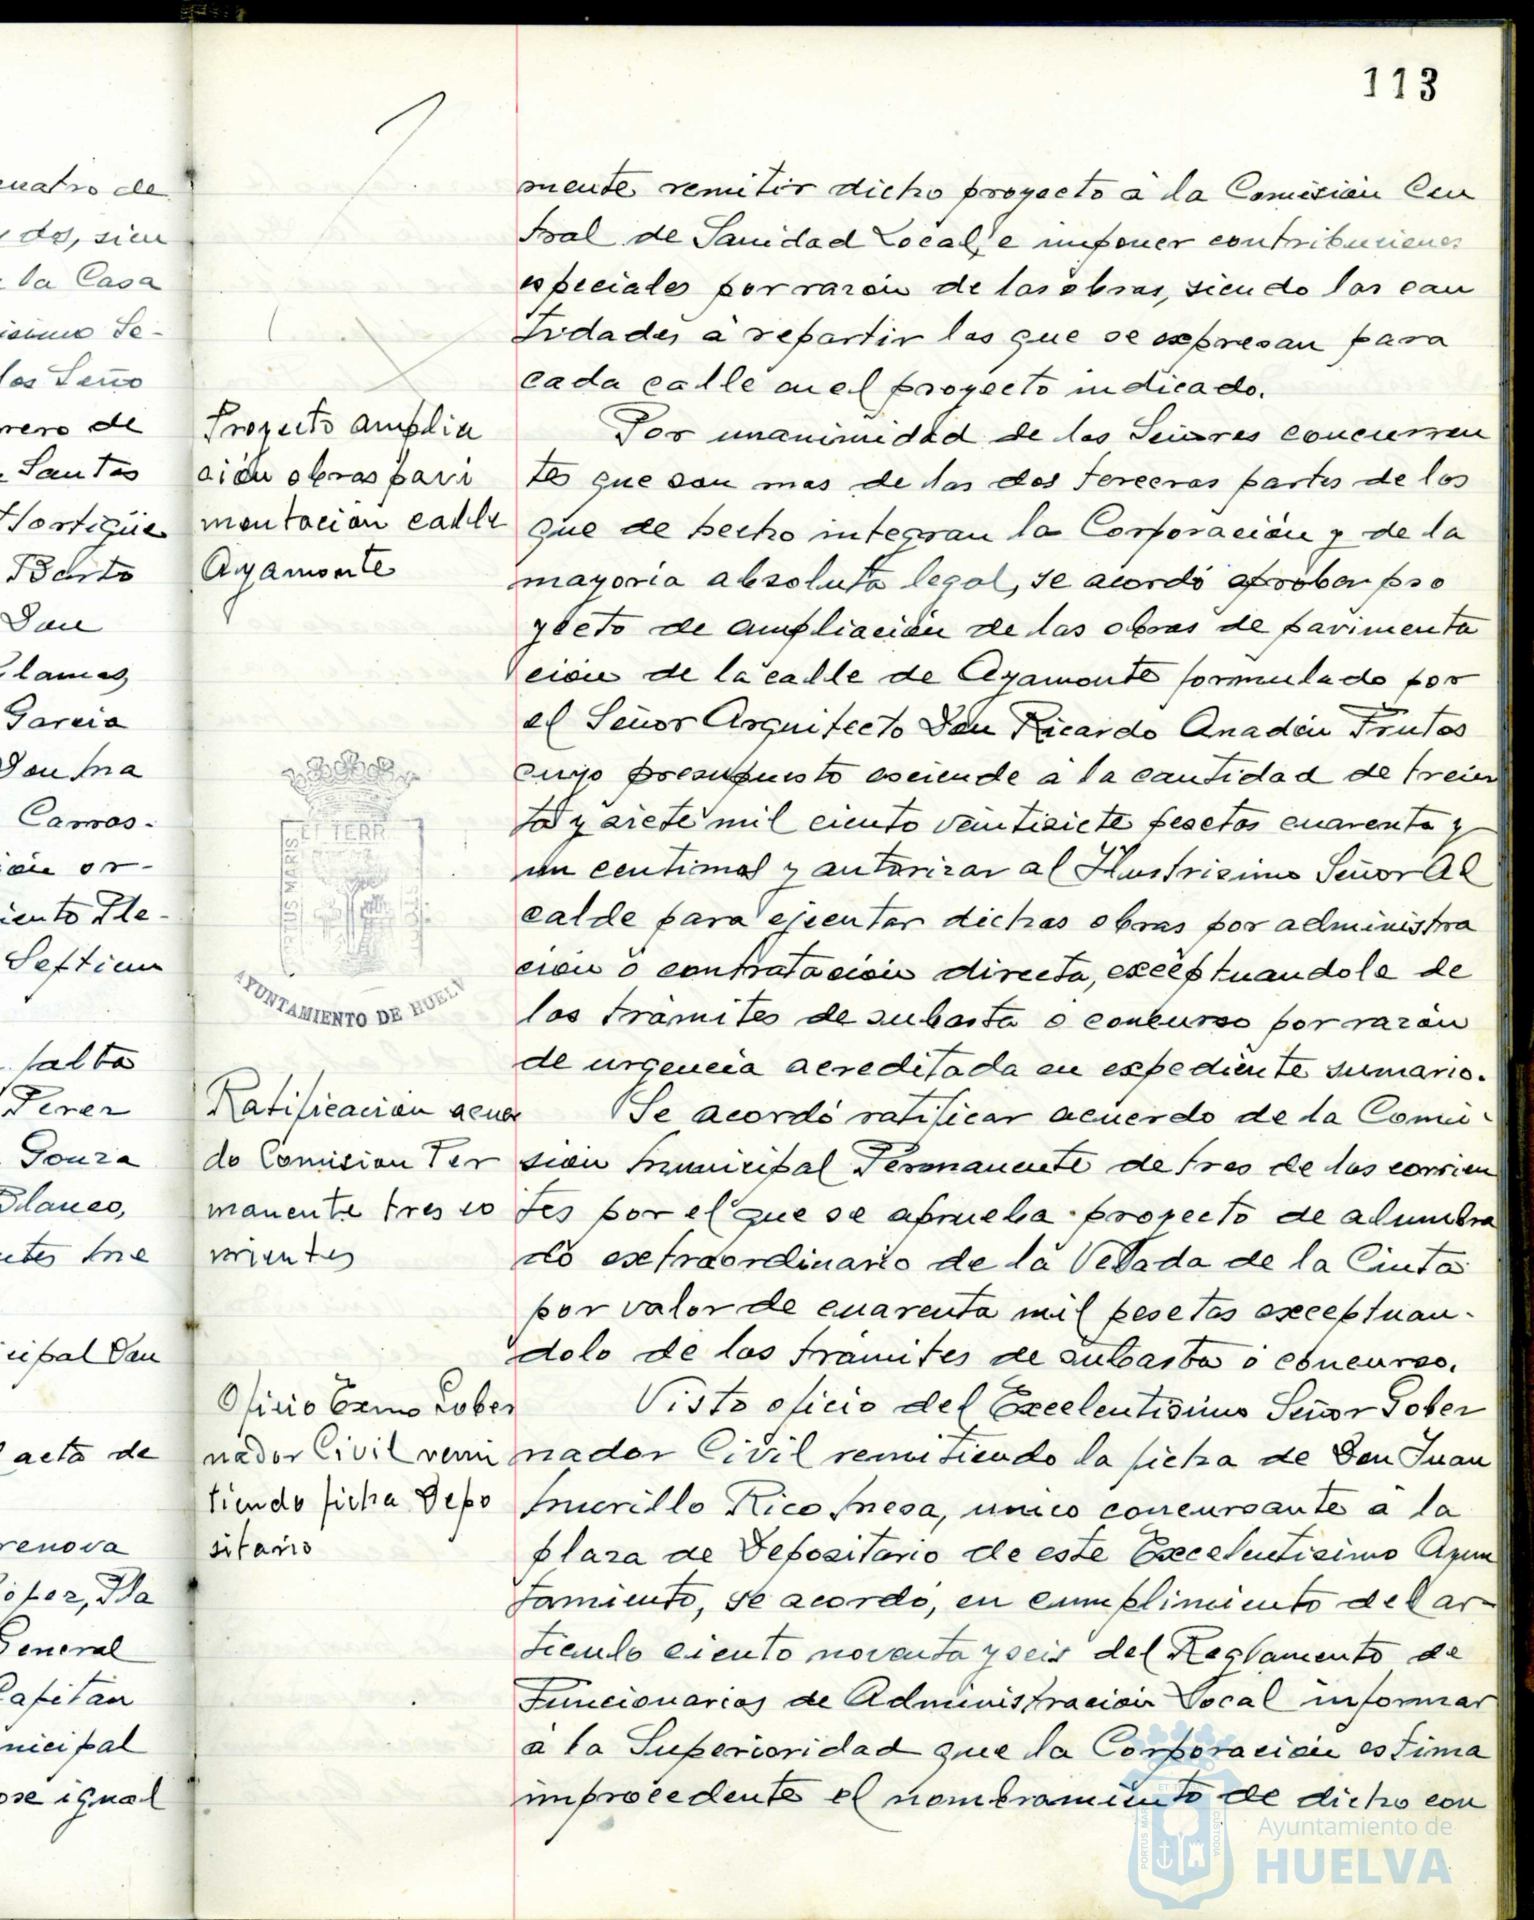 113
cuatro de
dos, sien
la Casa
isimo Se-
los Seño
rrero de
Santos
Hortigüe
Barto
Don
Llamas,
Garcia
Don Ma
Carras-
ión or-
iento Ple-
Septiem
falta
Perez
Gonza
Blanco,
ntes Me
icipal Don
acta de
renova
López, Pla
General
Capitan
nicipal
ose igual
Proyecto amplia
ción obras pavi
mentación calle
Ayamonte
ET TERR
PORTUS MARIS
AYUNTAMIENTO DE HUELV
Ratificación acuer
do Comision Per
manente tres co
rrientes
Oficio Excmo Gober
nador Civil remi
tiendo ficha Depo
sitario
mente remitir dicho proyecto á la Comisión Cen
tral de Sanidad Local, e imponer contribuciones
especiales por razón de las obras, siendo las can
tidades á repartir las que se expresan para
cada calle en el proyecto indicado.
Por unanimidad de los Señores concurren
tes que son mas de las dos terceras partes de los
que de hecho integran la Corporación y de la
mayoria absoluta legal, se acordó aprobar pro
yecto de ampliación de las obras de pavimenta
ción de la calle de Ayamonte formulado por
el Señor Arquitecto Don Ricardo Anadón Frutos
cuyo presupuesto asciende á la cantidad de trein
ta y siete mil ciento veintisiete pesetas cuarenta y
un centimos y autorizar al Ilustrisimo Señor Al
calde para ejecutar dichas obras por administra
ción ó contratación directa, exceptuandole de
los trámites de subasta ó concurso por razón
de urgencia acreditada en expediente sumario.
Se acordó ratificar acuerdo de la Comi-
sión Municipal Permanente de tres de los corrien
tes por el que se aprueba proyecto de alumbra
do extraordinario de la Velada de la Cinta
por valor de cuarenta mil pesetas exceptuan-
dolo de los trámites de subasta ó concurso.
Visto oficio del Excelentisimo Señor Gober
nador Civil remitiendo la ficha de Don Juan
Murillo Rico Mesa, unico concursante á la
plaza de Depositario de este Excelentisimo Ayun
tamiento, se acordó, en cumplimiento del ar-
ticulo ciento noventa y seis del Reglamento de
Funcionarios de Administración Local informar
á la Superioridad que la Corporación estima
improcedente el nombramiento de dicho con
Ayuntamiento de
HUELVA